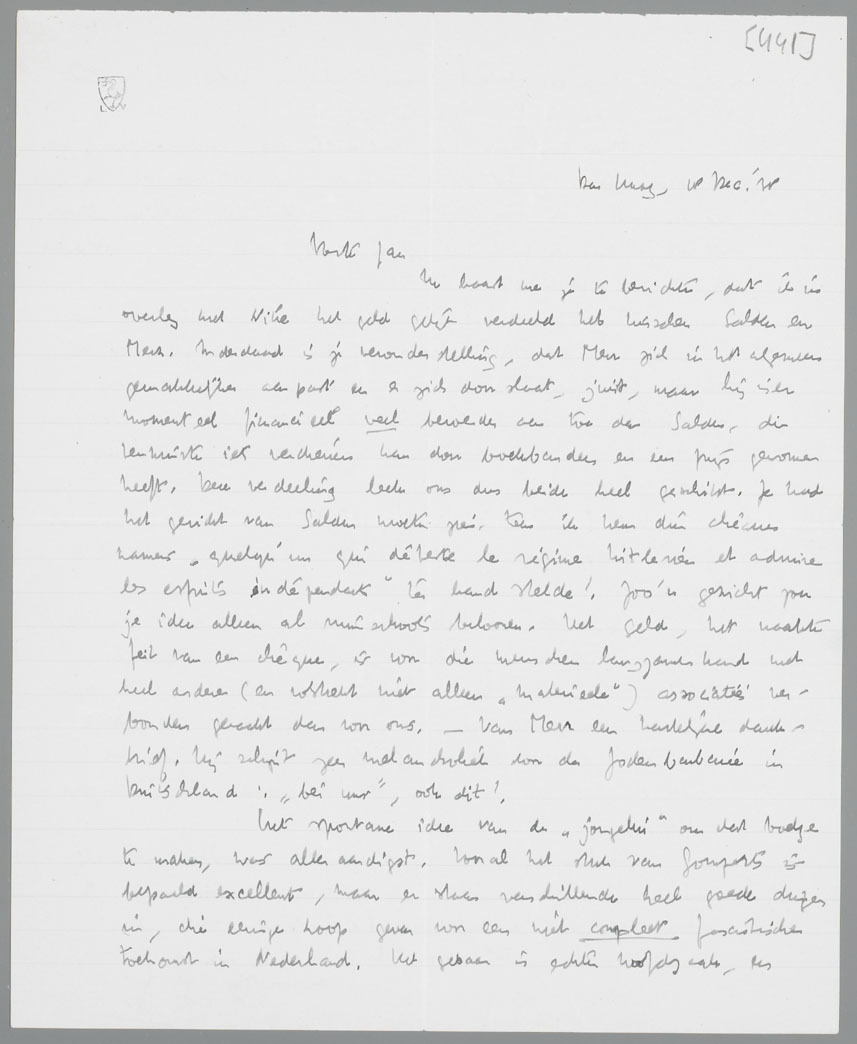 [441]
Den Haag, Dec.'38
Beste Jan
Ik haast me je te berichten, dat ik in
overleg met Niko het geld gelijk verdeeld heb tusschen Salden en
Merz. Inderdaad is je veronderstelling, dat Merz zich in het algemeen
gemakkelijker aanpast en er zich doorslaat, juist, maar hij is er
momenteel financieel veel beroerder aan toe dan Salden, die
tenminste iets verdienen kan door boekbanden en een prijs gewonnen
heeft. Deze verdeeling leek ons dus beide heel geschikt. Je had
het gezicht van Salden moeten zien, toen ik hem dien chèque
namens „quelqu'un qui déteste le régime hitlérien et admire
les esprits indépendants" ter hand stelde! Zoo'n gezicht zou
je idee alleen al ruimschoots beloonen. Het geld, het naakte
feit van een chèque, is voor die menschen langzamerhand met
heel andere (en volstrekt niet alleen „materieele") associaties ver-
bonden geraakt dan voor ons. — Van Merz een hartelijke dank-
brief. Hij schrijft zeer melancholiek over de Jodenbarbarie in
Duitschland: „bei uns", ook dit!
Het spontane idee van de „jongelui" om dat boekje
te maken, was alleraardigst. Vooral het stuk van Gomperts is
bepaald excellent, maar er staan verschillende heel goede dingen
in, die eenige hoop geven voor een niet compleet fascistische
toekomst in Nederland. Het gebaar is echter hoofdzaak, en